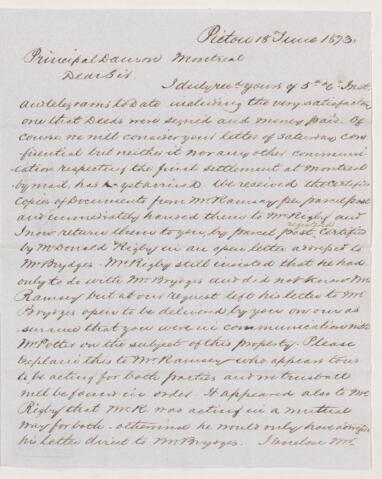 Pictou 18 June 1873.
Principal Dawson Montreal
Dear Sir
I duly recd yours of 5th & 6th Inst
and telegrams to date including the very satisfactory
one that Deeds were signed and money paid. Of
course we will consider your letter of Saturday con
fidential but neither it nor any other communi
cation respecting the final settlement at Montreal
by mail, has yet arrived. We received the Certified
Copies of Documents from Mr Ramsay per parcel post
and immediately handed them to Mr Rigby and
I now return them to you, by parcel post, Certified
registered
by McDonald & Rigby in an open letter addressed to
Mr Brydges. Mr Rigby still insisted that he had
only to do with Mr Brydges and did not know Mr
Ramsay but at our request left his letter to Mr
Brydges open to be delivered by you on our as
surance that you were in communication with
Mr Potter on the subject of this property. Please
explain this to Mr Ramsay who appears to us
to be acting for both parties and we trust all
will be found in order. It appeared also to Mr
Rigby that Mr R. was acting in a mutual
way for both - otherwise he would only have addressed
his letter direct to Mr Brydges. I enclose Mr